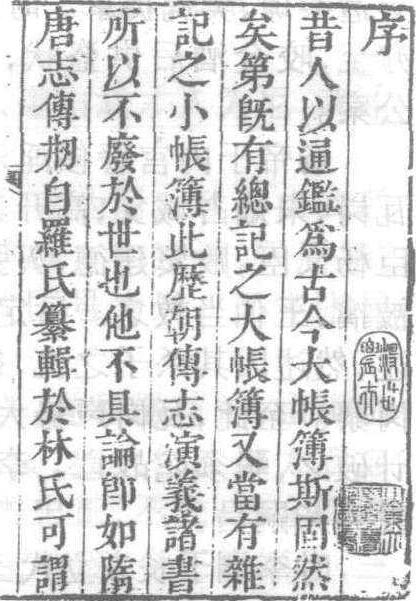 序
昔人以通鑑為古今大帳簿斯固然
矣第旣有總記之大帳簿又當有雜
記之小帳簿此歷朝傳志演義諸書
所以不廢於世也他不具論卽如隋
唐志傳刱自羅氏纂輯於林氏可謂